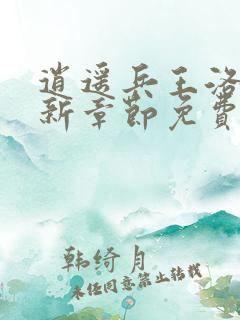 逍遥兵王洛
新章节免费
韩绮月
未经同意禁止转载